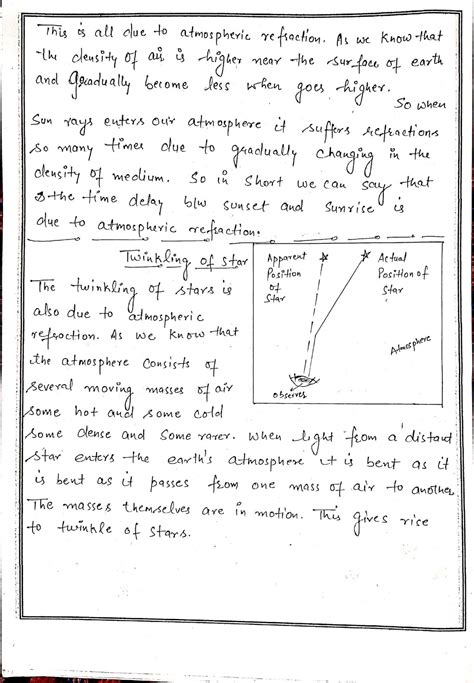 This is all due to atmospheric refraction. As we know that
the density of air is higher near the surface of earth
and gradually become less when goes higher.
So when
Sun rays enters our atmosphere it suffers refractions
so many times due to gradually changing in the
density of medium. So in short we can say that
the time delay b/w sunset and sunrise is
due to atmospheric refraction.
Twinkling of star
The twinkling of stars is
also due to atmospheric
refraction. As we know that
the atmosphere consists of
several moving masses of air
some hot and some cold
Apparent
Position
of
Star
Actual
Position of
Star
Atmosphere
observer
some dense and some rarer. When light from a distand
star enters the earth's atmosphere it is bent as it
is bent as it passes from one mass of air to another.
The masses themselves are in motion. This gives rise
to twinkle of stars.